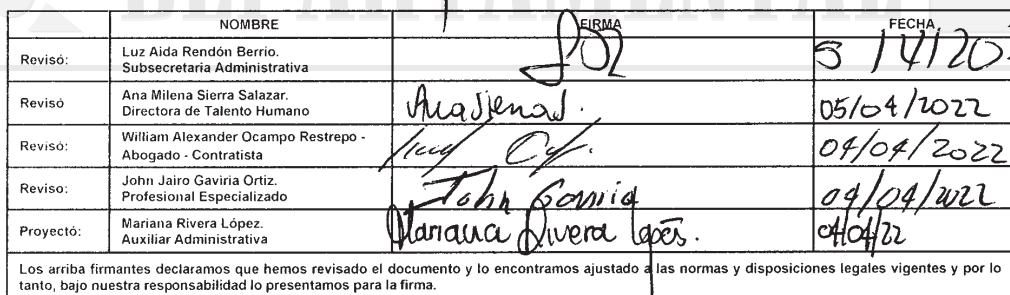 DEPARTAMENTAL
NOMBRE FIRMA FECHA
Revisó: Luz Aida Rendón Berrio.
Subsecretaria Administrativa
5/4/202
Revisó Ana Milena Sierra Salazar.
Directora de Talento Humano
AnaSierraS. 05/04/2022
Revisó: William Alexander Ocampo Restrepo -
Abogado - Contratista
04/04/2022
Reviso: John Jairo Gaviria Ortiz.
Profesional Especializado
John Gaviria 04/04/2022
Proyectó: Mariana Rivera López.
Auxiliar Administrativa
Mariana Rivera López. 04/04/22
Los arriba firmantes declaramos que hemos revisado el documento y lo encontramos ajustado a las normas y disposiciones legales vigentes y por lo
tanto, bajo nuestra responsabilidad lo presentamos para la firma.